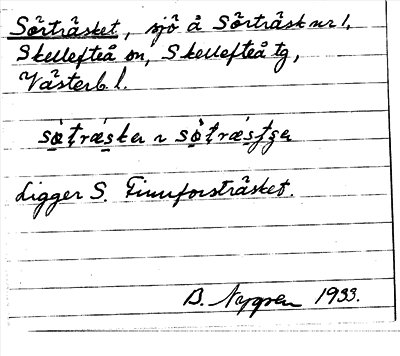 Sörträsket, sjö å Sörträsk nr 1,
Skellefteå sn, Skellefteå tg,
Västerb. l.
Ligger S. Finnforsträsket.
B. Nygren 1933.